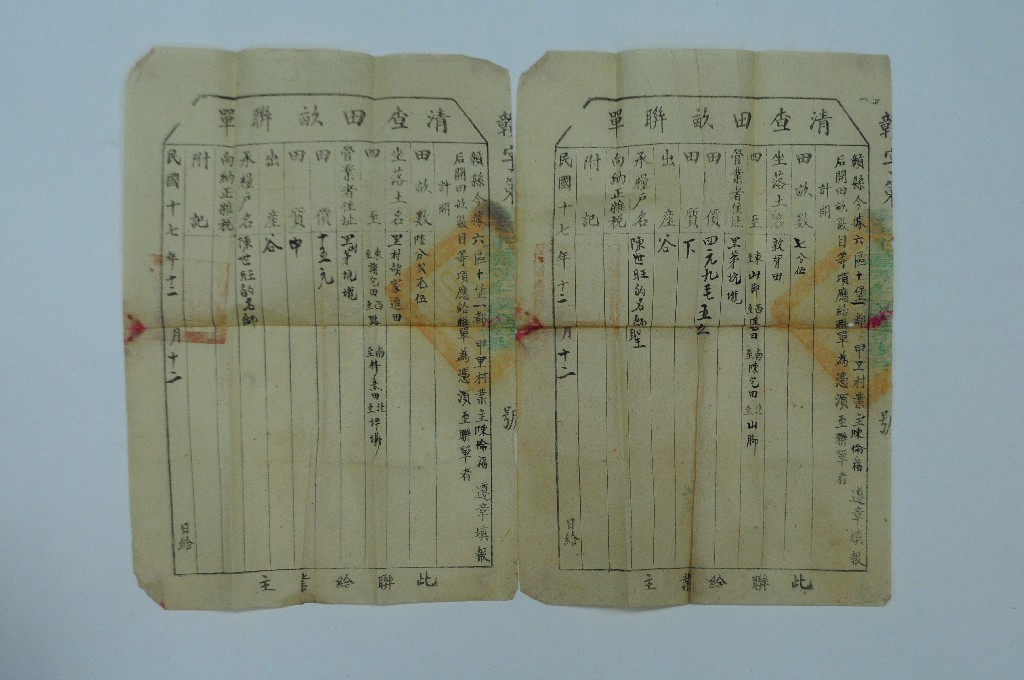 贛字第
號
清查田畝聯單
贛縣今據六區十堡一都 甲里村業主陳倫福遵章填報
后開田畝數目等項應給聯單為憑須至聯單者
計開
田畝數 七分伍
坐落土名 背田
四至 東至山腳 西至 田 南至陳宅田 北至山腳
管業者住址 里茅坑壠
田價 四元九毛五
田質 下
出產 谷
承糧戶名 陳世旺的名
向納正雜稅
附記
民國十七年十二月十二日給
此聯給業主
贛字第
號
清查田畝聯單
贛縣今據六區十堡一都 甲里村業主陳倫福遵章填報
后開田畝數目等項應給聯單為憑須至聯單者
計開
田畝數 陸分 伍
坐落土名 里村 家 田
四至 東至 宅田 西至路 南至 田 北至
管業者住址 里 茅坑壠
田價 十五元
田質 中
出產 谷
承糧戶名 陳世旺的名
向納正雜稅
附記
民國十七年十二月十二日給
此聯給業主